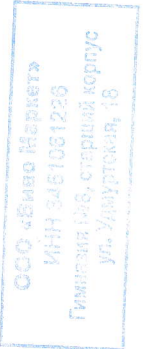 ООО «Виво Маркет»
ИНН
Гимназия №8, старший корпус
ул. Удмуртская, 18